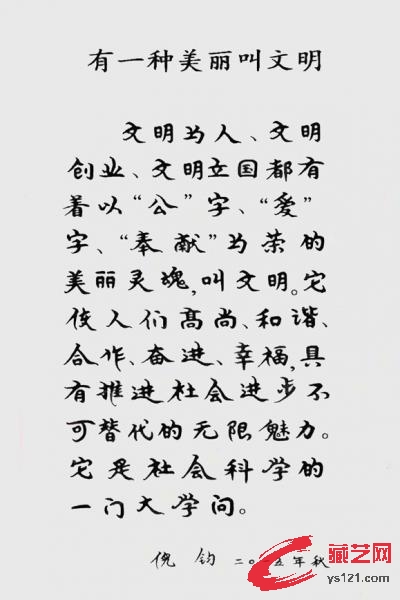 有一种美丽叫文明
文明为人、文明
创业、文明立国都有
着以“公”字、“爱”
字、“奉献”为荣的
美丽灵魂,叫文明。它
使人们高尚、和谐、
合作、奋进、幸福,具
有推进社会进步不
可替代的无限魅力。
它是社会科学的
一门大学问。
倪钧 二〇一五年秋
藏艺网
ys121.com